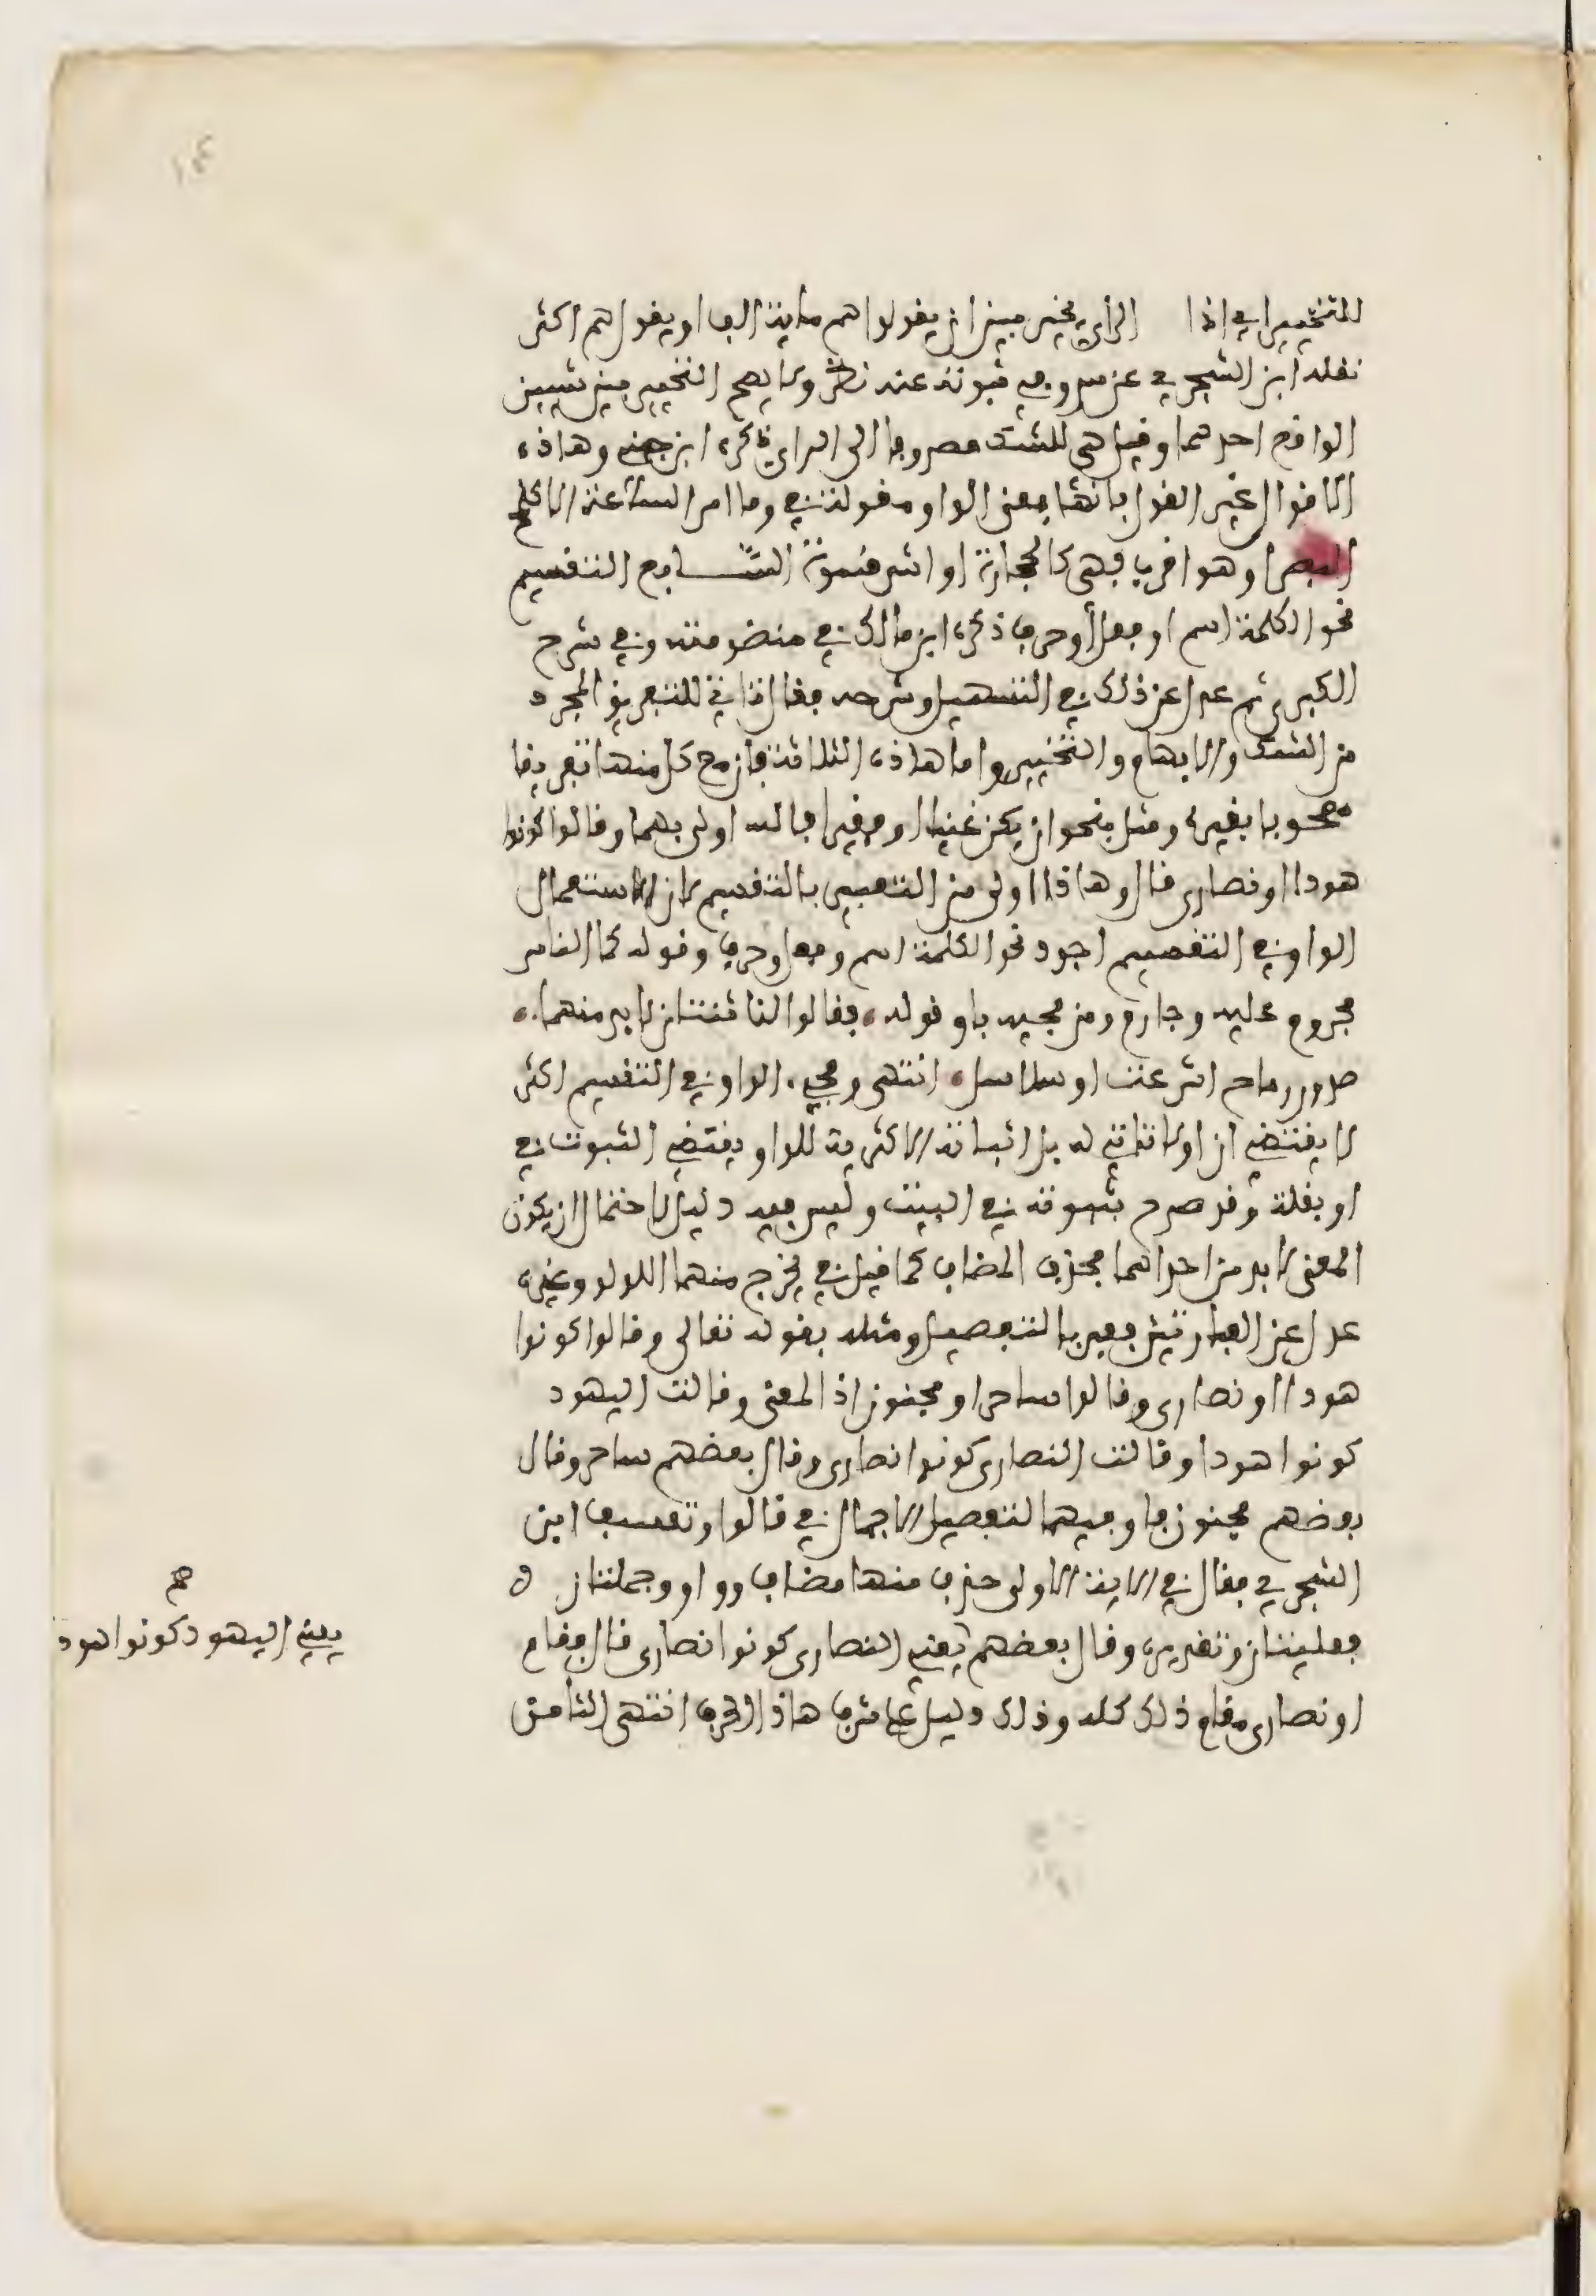 ١٤
للتخيير اي اذا الراي يخير بين ان يقول هم ماية الف او يقول هم اكثر
نقله ابن الشجري عن س وفي ثبوته عنه نظر ولا يصح التخيير بين شيين
الواقع احدهما وقيل هي للشك مصروفا الى الراي ذكره ابن جني وهاذه
الاقوال غير القول بانها بمعنى الواو مقولة في وما امر الساعة الا كلمح
البصر او هو اقرب فهي كالحجارة او اشد قسوة السابع التقسيم
نحو الكلمة اسم او فعل او حرف ذكره ابن مالك في منظومته وفي شرح
الكبرى ثم عدل عن ذلك في التسهيل وشرحه فقال تاتي للتفريق المجرد
من الشك والابهام والتخيير واما هاذه الثلاثة فان مع كل منها تفريقا
مصحوبا بغيره ومثل بنحو ان يكن غنيا او فقيرا فالله اولى بهما وقالوا كونوا
هودا او نصارى قال وهاذا اولى من التعبير بالتقسيم لان استعمال
الواو في التقسيم اجود نحو الكلمة اسم وفعل وحرف وقوله كما الناس
مجروم عليه وجارم ومن مجيه باو قوله فقالوا لنا ثنتان لا بد منهما
صدور رماح اشرعت او سلاسل انتهى ومجي الواو في التقسيم اكثر
لا يقتضي ان او لا تاتي له بل اثباته الاكثرية للواو يقتضي الثبوت في
او بقلة وقد صرح بثبوته في البيت وليس فيه دليل لاحتمال ان يكون
المعنى لا بد من احداهما فحذف المضاف كما قيل في يخرج منهما اللولو وغيره
عدل عن العبارتين فعبر بالتفصيل ومثله بقوله تعالى وقالوا كونوا
هودا او نصارى وقالوا ساحر او مجنون اذ المعنى وقالت اليهود
كونوا هودا وقالت النصارى كونوا نصارى وقال بعضهم ساحر وقال
بعضهم مجنون فاو فيهما لتفصيل الاجمال في قالوا وتعسف ابن
الشجري فقال في الاية الاولى حذف منها مضاف وواو وجملتان
فعليتان وتقديره وقال بعضهم يعني النصارى كونوا نصارى قال فقام
او نصارى مقام ذلك كله وذلك دليل على شرف هاذا الحرف انتهى الثامن
صح
يعني اليهود كونوا هودا